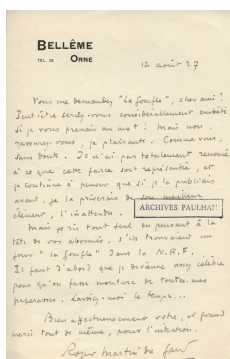 BELLÊME
TEL. 26 ORNE
12 août 27
Vous me demandez "Le Gonfle", cher ami ?
Peut-être seriez-vous considérablement embêté
si je vous prenais au mot ! Mais non,
rassurez-vous, je plaisante. Comme vous,
sans doute. Je n'ai pas totalement renoncé
à ce que cette farce soit représentée, et
je continue à penser que si je la publiais
avant, je la priverais de son meilleur
élément, l'inattendu.
ARCHIVES PAULHAN
Mais je ris tout seul en pensant à la
tête de vos abonnés, s'ils trouvaient un
jour "la Gonfle" dans la N.R.F.
Il faut d'abord que je devienne assez célèbre
pour qu'on fasse mouture de toutes mes
paperasses. Laissez-moi le temps...
Bien affectueusement votre, et grand
merci tout de même, pour l'intention.
Roger Martin du Gard